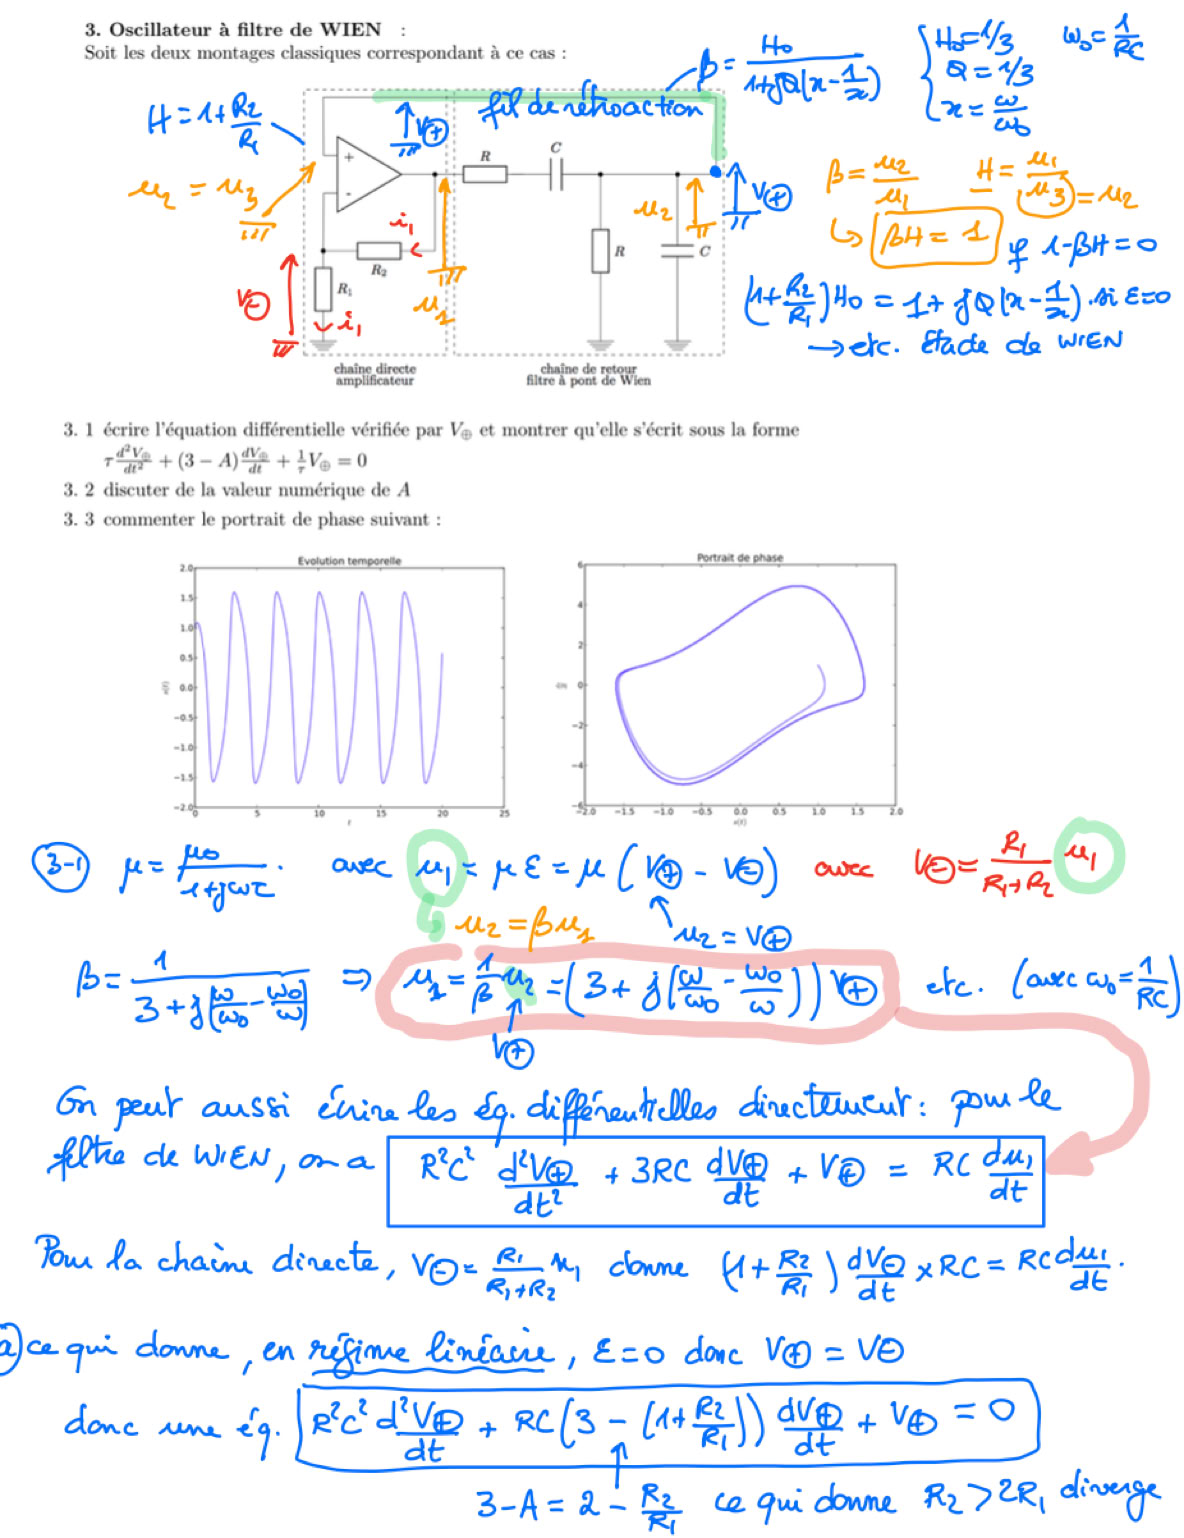 3. Oscillateur à filtre de WIEN :
Soit les deux montages classiques correspondant à ce cas :
H = 1+R2/R1
u2 = u3
V⊕
fil de rétroaction
β = H0/(1+jQ(x-1/x))
{ H0=1/3
Q = 1/3
x = ω/ω0
ω0=1/RC
+
-
R
C
u2
V⊕
R
C
i1
R2
R1
V⊖
i1
u1
β = u2/u1 H = u1/u3 = u2
↳ βH = 1 si 1-βH=0
(1+R2/R1)H0 = 1+jQ(x-1/x). si ε=0
→ etc. Étude de WIEN
chaîne directe
amplificateur
chaîne de retour
filtre à pont de Wien
3. 1 écrire l'équation différentielle vérifiée par V⊕ et montrer qu'elle s'écrit sous la forme
τ d²V⊕/dt² + (3 − A) dV⊕/dt + 1/τ V⊕ = 0
3. 2 discuter de la valeur numérique de A
3. 3 commenter le portrait de phase suivant :
Evolution temporelle
2.0
1.5
1.0
0.5
0.0
−0.5
−1.0
−1.5
−2.0
0 5 10 15 20 25
t
Portrait de phase
6
4
2
0
−2
−4
−6
−2.0 −1.5 −1.0 −0.5 0.0 0.5 1.0 1.5 2.0
3-1 μ = μ0/(1+jωτ) . avec u1 = με = μ (V⊕ - V⊖) avec V⊖ = R1/(R1+R2) u1
u2 = βu1
u2 = V⊕
β = 1/(3+j(ω/ω0-ω0/ω)) ⇒ u1 = 1/β u2 = (3+j(ω/ω0-ω0/ω)) V⊕ etc. (avec ω0=1/RC)
V⊕
On peut aussi écrire les éq. différentielles directement : pour le
filtre de WIEN, on a R²C² d²V⊕/dt² + 3RC dV⊕/dt + V⊕ = RC du1/dt
Pour la chaîne directe, V⊖ = R1/(R1+R2) u1 donne (1+R2/R1) dV⊖/dt × RC = RC du1/dt.
a) ce qui donne, en régime linéaire, ε=0 donc V⊕ = V⊖
donc une éq. R²C² d²V⊕/dt + RC (3 - (1+R2/R1)) dV⊕/dt + V⊕ = 0
3-A = 2 - R2/R1 ce qui donne R2>2R1 diverge